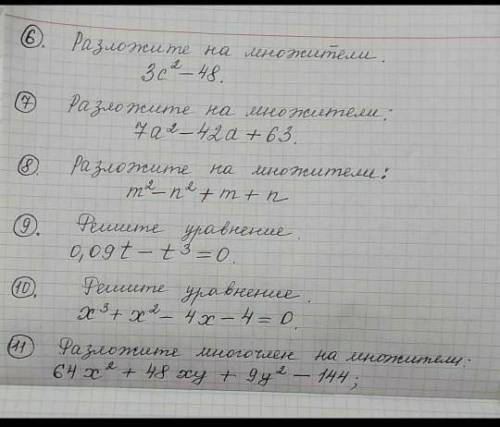 6. Разложите на множители.
3c² – 48.
7 Разложите на множители:
7a² – 42a + 63.
8. Разложите на множители:
m² – n² + m + n
9. Решите уравнение.
0,09t – t³ = 0.
10. Решите уравнение.
x³ + x² – 4x – 4 = 0.
11 Разложите многочлен на множители:
64x² + 48xy + 9y² – 144;